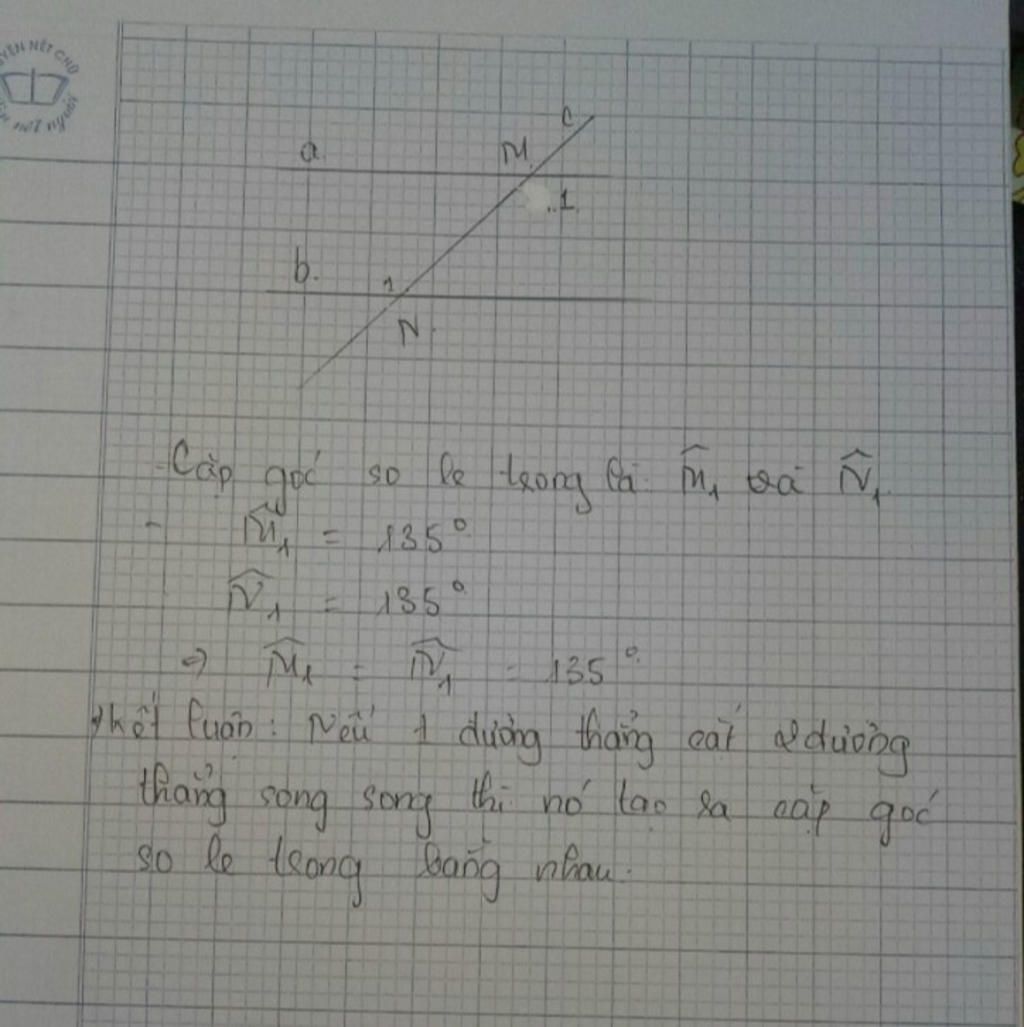 YỆN NÉT CHỮ
c
a
M
1
b.
1
N
- Cặp góc so le trong là: M̂₁ và N̂₁.
- M̂₁ = 135°
N̂₁ = 135°
⇒ M̂₁ = N̂₁ = 135°
Kết luận: Nếu 1 đường thẳng cắt 2 đường
thẳng song song thì nó tạo ra cặp góc
so le trong bằng nhau.